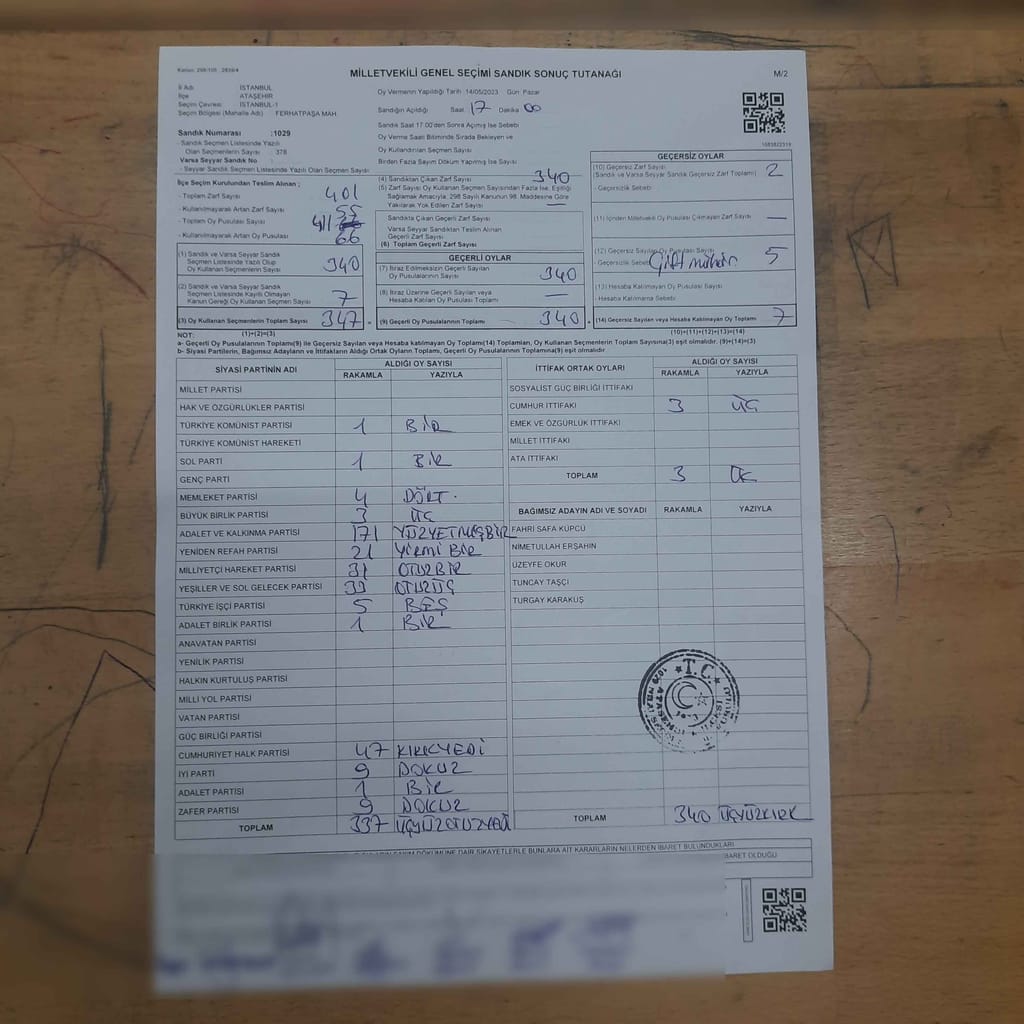 MİLLETVEKİLİ GENEL SEÇİMİ SANDIK SONUÇ TUTANAĞI
M/2
İl Adı İSTANBUL
İlçe ATAŞEHİR
Seçim Çevresi İSTANBUL-1
Seçim Bölgesi (Mahalle Adı) FERHATPAŞA MAH.
Sandık Numarası :1029
- Sandık Seçmen Listesinde Yazılı
Olan Seçmen Sayısı : 378
Varsa Seyyar Sandık No
- Seyyar Sandık Seçmen Listesinde Yazılı Olan Seçmen Sayısı
Oy Vermenin Yapıldığı Tarih :14/05/2023 Gün :Pazar
Sandığın Açıldığı Saat 17 Dakika 00
Sandık Saat 17:00'den Sonra Açılmış İse Sebebi
Oy Verme Saati Bitiminde Sırada Bekleyen ve
Oy Kullandırılan Seçmen Sayısı
Birden Fazla Sayım Döküm Yapılmış İse Sayısı
İlçe Seçim Kurulundan Teslim Alınan ;
- Toplam Zarf Sayısı 401
- Kullanılmayarak Artan Zarf Sayısı
- Toplam Oy Pusulası Sayısı
- Kullanılmayarak Artan Oy Pusulası 66
(1) Sandık ve Varsa Seyyar Sandık
Seçmen Listesinde Yazılı Olup
Oy Kullanan Seçmenlerin Sayısı 340
(2) Sandık ve Varsa Seyyar Sandık
Seçmen Listesinde Kayıtlı Olmayan
Kanun Gereği Oy Kullanan Seçmen Sayısı 7
(3) Oy Kullanan Seçmenlerin Toplam Sayısı 347
(1)+(2)=(3)
(4) Sandıktan Çıkan Zarf Sayısı 340
(5) Zarf Sayısı Oy Kullanan Seçmen Sayısından Fazla İse, Eşitliği
Sağlamak Amacıyla, 298 Sayılı Kanunun 98. Maddesine Göre
Yakılarak Yok Edilen Zarf Sayısı —
Sandıkta Çıkan Geçerli Zarf Sayısı
Varsa Seyyar Sandıktan Teslim Alınan
Geçerli Zarf Sayısı
(6) Toplam Geçerli Zarf Sayısı
GEÇERLİ OYLAR
(7) İtiraz Edilmeksizin Geçerli Sayılan
Oy Pusulalarının Sayısı 340
(8) İtiraz Üzerine Geçerli Sayılan veya
Hesaba Katılan Oy Pusulası Toplamı —
= (9) Geçerli Oy Pusulalarının Toplamı 340
GEÇERSİZ OYLAR
(10) Geçersiz Zarf Sayısı 2
(Sandık ve Varsa Seyyar Sandık Geçersiz Zarf Toplamı)
- Geçersizlik Sebebi
(11) İçinden Milletvekili Oy Pusulası Çıkmayan Zarf Sayısı —
(12) Geçersiz Sayılan Oy Pusulası Sayısı 5
- Geçersizlik Sebebi Çift mühür
(13) Hesaba Katılmayan Oy Pusulası Sayısı
- Hesaba Katılmama Sebebi
+ (14) Geçersiz Sayılan veya Hesaba Katılmayan Oy Toplamı 7
(10)+(11)+(12)+(13)=(14)
NOT:
a- Geçerli Oy Pusulasının Toplamı(9) ile Geçersiz Sayılan veya Hesaba Katılmayan Oy Toplamı(14) Toplamları, Oy Kullanan Seçmenlerin Toplam Sayısına(3) eşit olmalıdır. (9)+(14)=(3)
b- Siyasi Partilerin, Bağımsız Adayların ve İttifakların Aldığı Ortak Oyların Toplamı, Geçerli Oy Pusulalarının Toplamına(9) eşit olmalıdır
SİYASİ PARTİNİN ADI ALDIĞI OY SAYISI
RAKAMLA YAZIYLA
MİLLET PARTİSİ
HAK VE ÖZGÜRLÜKLER PARTİSİ
TÜRKİYE KOMÜNİST PARTİSİ 1 BİR
TÜRKİYE KOMÜNİST HAREKETİ
SOL PARTİ 1 BİR
GENÇ PARTİ
MEMLEKET PARTİSİ 4 DÖRT.
BÜYÜK BİRLİK PARTİSİ 3 ÜÇ
ADALET VE KALKINMA PARTİSİ 171 YÜZYETMİŞBİR
YENİDEN REFAH PARTİSİ 21 YİRMİ BİR
MİLLİYETÇİ HAREKET PARTİSİ 31 OTUZBİR
YEŞİLLER VE SOL GELECEK PARTİSİ 33 OTUZÜÇ
TÜRKİYE İŞÇİ PARTİSİ 5 BEŞ
ADALET BİRLİK PARTİSİ 1 BİR
ANAVATAN PARTİSİ
YENİLİK PARTİSİ
HALKIN KURTULUŞ PARTİSİ
MİLLİ YOL PARTİSİ
VATAN PARTİSİ
GÜÇ BİRLİĞİ PARTİSİ
CUMHURİYET HALK PARTİSİ 47 KIRKYEDİ
İYİ PARTİ 9 DOKUZ
ADALET PARTİSİ 1 BİR
ZAFER PARTİSİ 9 DOKUZ
TOPLAM 337 ÜÇYÜZOTUZYEDİ
İTTİFAK ORTAK OYLARI ALDIĞI OY SAYISI
RAKAMLA YAZIYLA
SOSYALİST GÜÇ BİRLİĞİ İTTİFAKI
CUMHUR İTTİFAKI 3 ÜÇ
EMEK VE ÖZGÜRLÜK İTTİFAKI
MİLLET İTTİFAKI
ATA İTTİFAKI
TOPLAM 3 ÜÇ
BAĞIMSIZ ADAYIN ADI VE SOYADI RAKAMLA YAZIYLA
FAHRİ SAFA KÜPCÜ
NİMETULLAH ERŞAHİN
ÜZEYFE OKUR
TUNCAY TAŞÇI
TURGAY KARAKUŞ
T.C.
TOPLAM 340 ÜÇYÜZKIRK
DÖKÜMÜNE DAİR ŞİKAYETLERLE BUNLARA AİT KARARLARIN NELERDEN İBARET BULUNDUKLARI
İBARET OLDUĞU